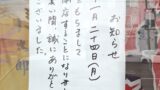 お知らせ
一月二十四日(月)
をもちまして
閉店することになりました
長い間誠にありがとう
ございました。